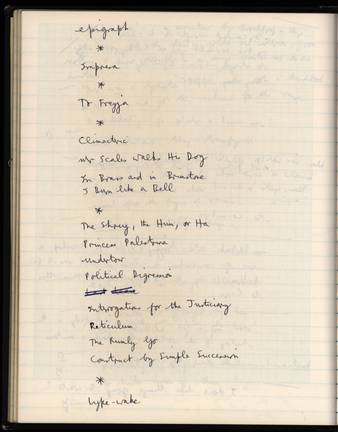 epigraph
*
Impresa
*
To Freyja
*
Climacteric
Mr Scales Walks His Dog
In Brass and in Brimstone
I Burn like a Bell
*
The Shrew, the Hun, or Ha
Princess Palestrina
undertow
Political Digression
Interrogations for the Justiciary
Reticulum
The Ruly Ego
Construct by Simple Succession
*
Lyke-wake